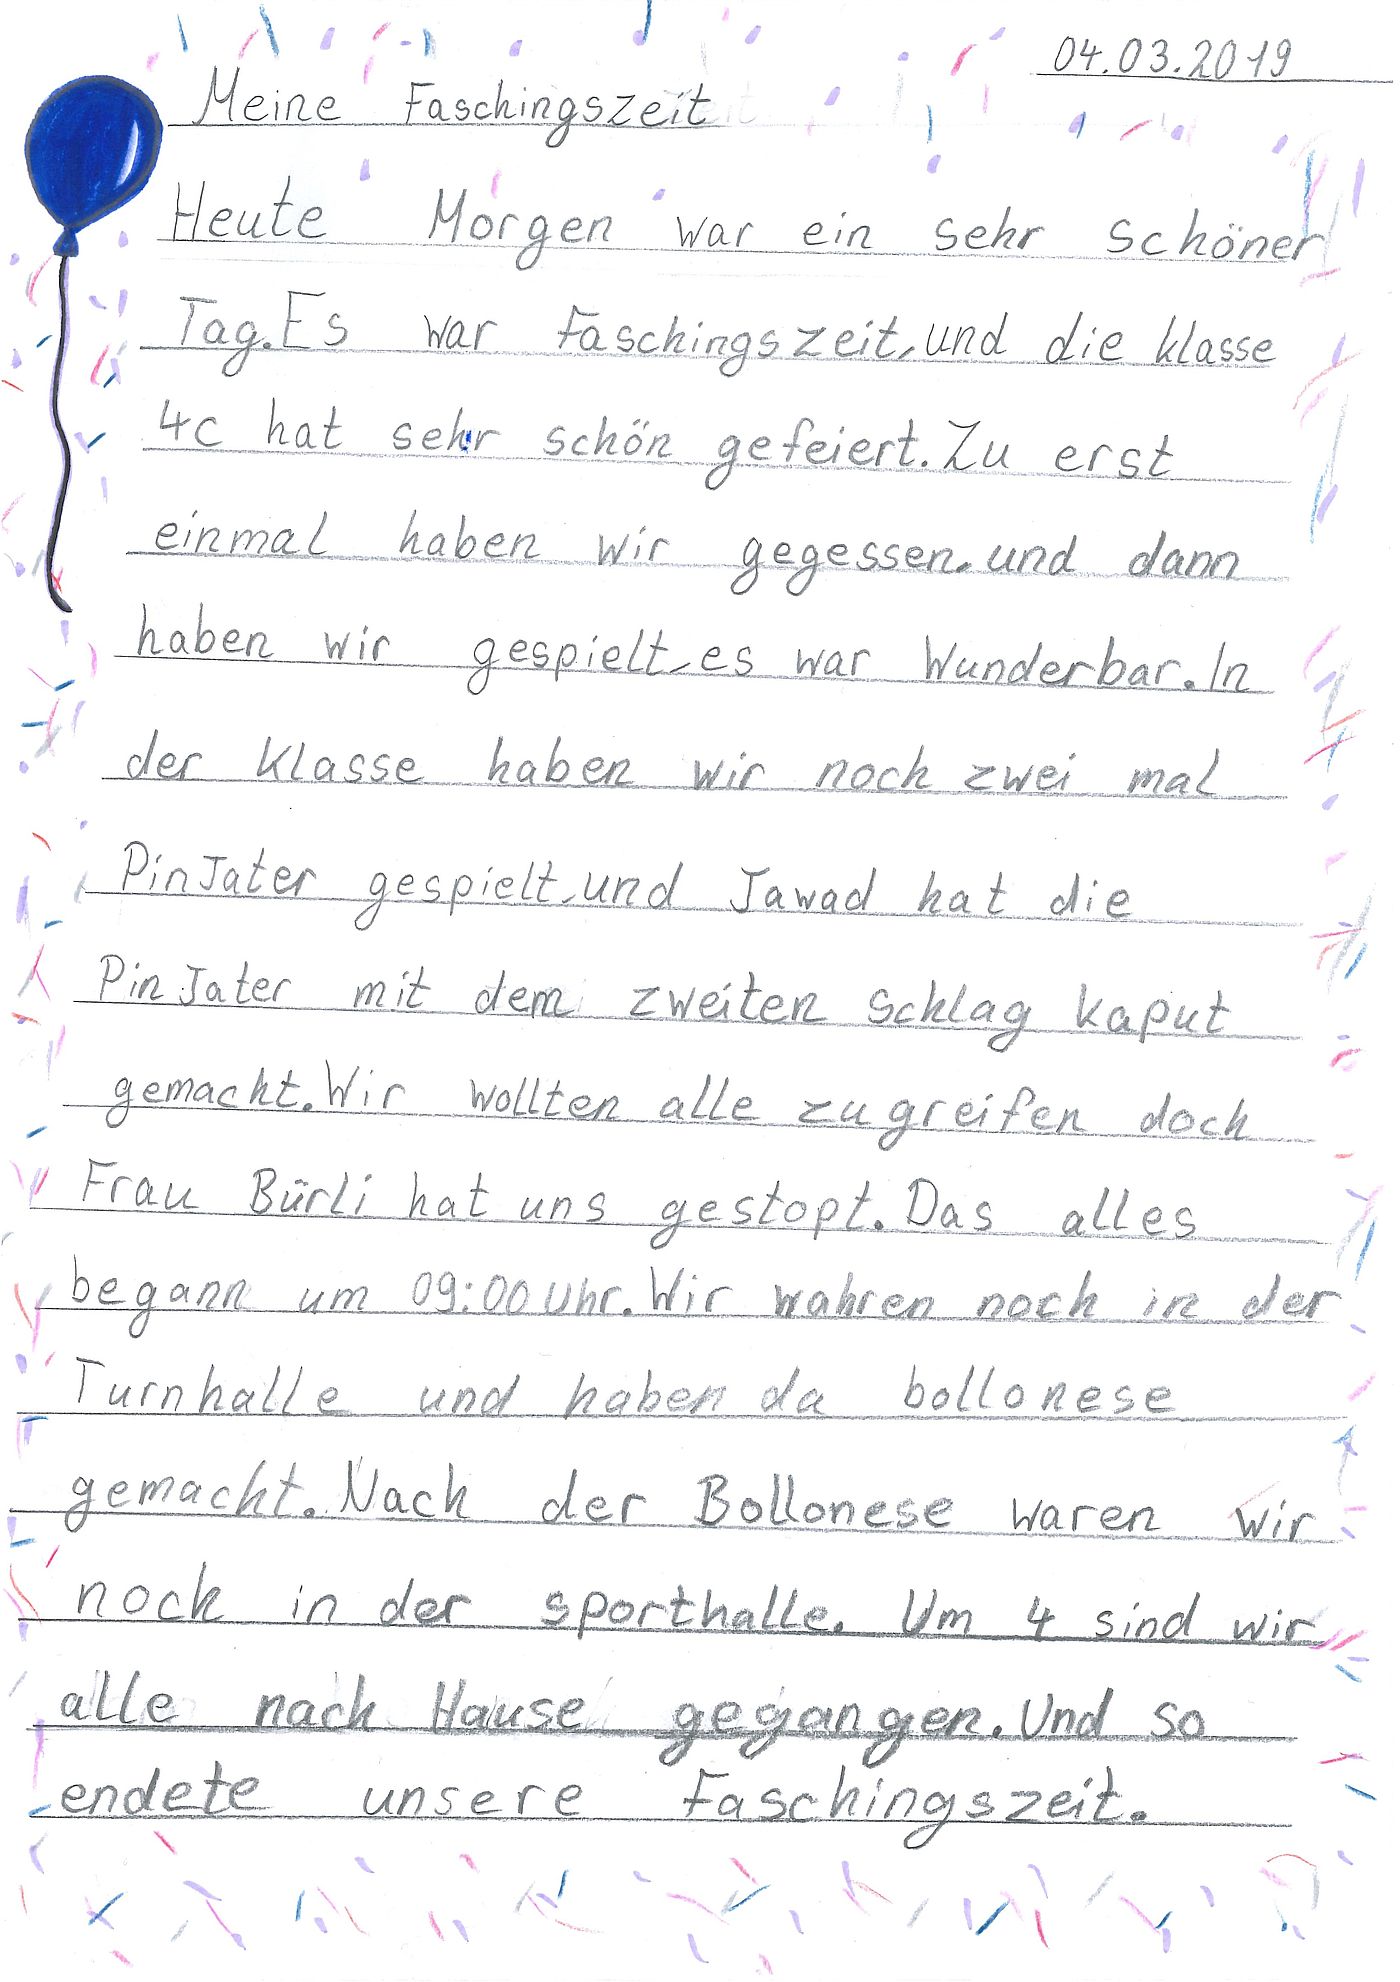 04.03.2019
Meine Faschingszeit
Heute Morgen war ein sehr schöner
Tag. Es war Faschingszeit, und die klasse
4c hat sehr schön gefeiert. Zu erst
einmal haben wir gegessen, und dann
haben wir gespielt, es war Wunderbar. In
der Klasse haben wir noch zwei mal
PinJater gespielt, und Jawad hat die
PinJater mit dem zweiten schlag kaput
gemacht. Wir wollten alle zugreifen doch
Frau Bürli hat uns gestopt. Das alles
begann um 09:00 Uhr. Wir wahren noch in der
Turnhalle und haben da bollonese
gemacht. Nach der Bollonese waren wir
noch in der sporthalle. Um 4 sind wir
alle nach Hause gegangen. Und so
endete unsere Faschingszeit.